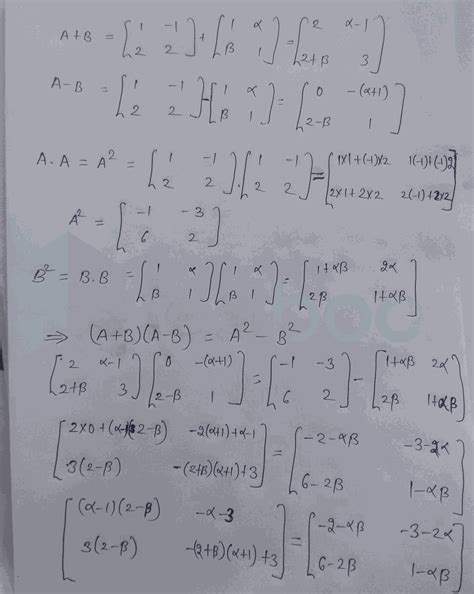 A+B = [1 -1; 2 2] + [1 α; β 1] = [2 α-1; 2+β 3]
A-B = [1 -1; 2 2] - [1 α; β 1] = [0 -(α+1); 2-β 1]
A.A = A² = [1 -1; 2 2] . [1 -1; 2 2] = [1×1+(-1)×2 1(-1)+(-1)2; 2×1+2×2 2(-1)+2×2]
A² = [-1 -3; 6 2]
B² = B.B = [1 α; β 1] [1 α; β 1] = [1+αβ 2α; 2β 1+αβ]
⇒ (A+B)(A-B) = A² - B²
[2 α-1; 2+β 3] [0 -(α+1); 2-β 1] = [-1 -3; 6 2] - [1+αβ 2α; 2β 1+αβ]
[2×0+(α-1)(2-β) -2(α+1)+α-1; 3(2-β) -(2+β)(α+1)+3] = [-2-αβ -3-2α; 6-2β 1-αβ]
[(α-1)(2-β) -α-3; 3(2-β) -(2+β)(α+1)+3] = [-2-αβ -3-2α; 6-2β 1-αβ]